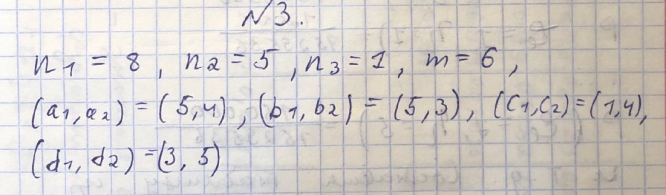 №3.
n1 = 8, n2 = 5, n3 = 1, m = 6,
(a1, a2) = (5, 4), (b1, b2) = (5, 3), (c1, c2) = (1, 4),
(d1, d2) = (3, 5)